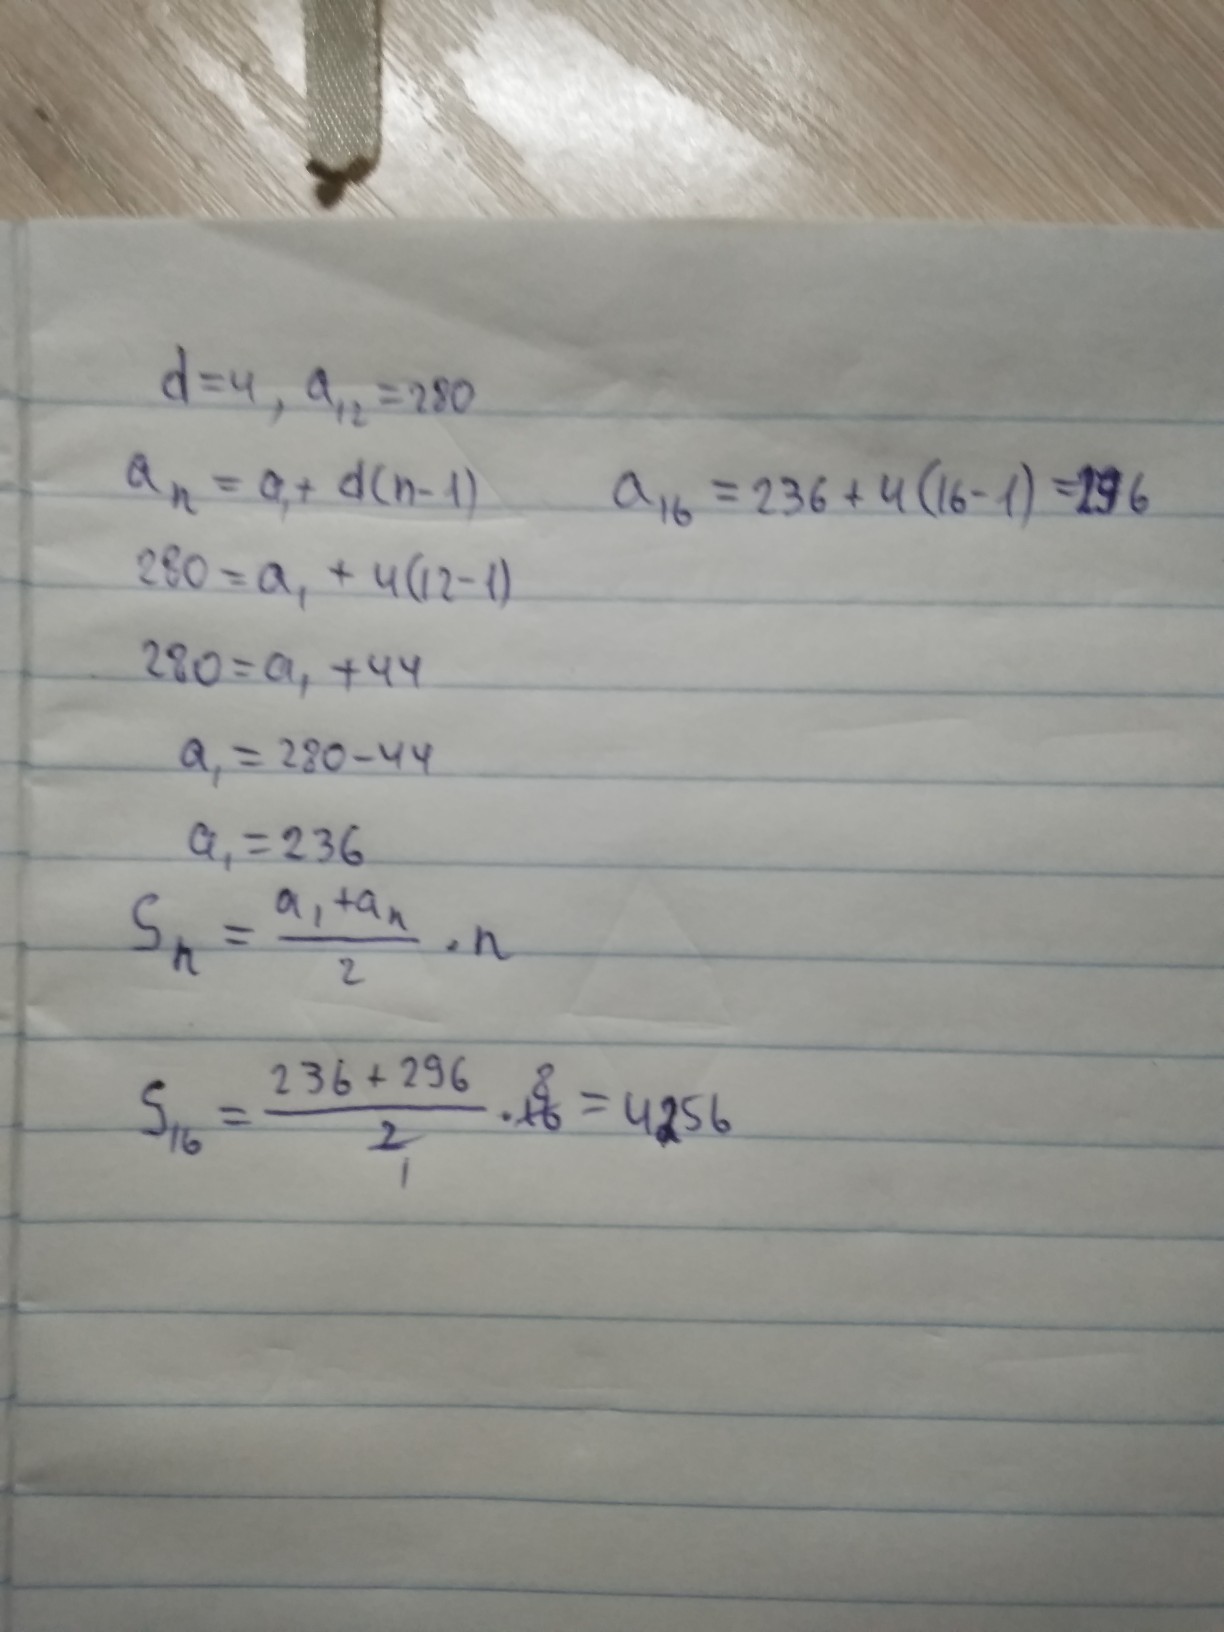 d=4, a₁₂=280
aₙ = a₁ + d(n-1)
a₁₆ = 236 + 4(16-1) = 296
280 = a₁ + 4(12-1)
280 = a₁ + 44
a₁ = 280-44
a₁ = 236
Sₙ = (a₁+aₙ)/2 · n
S₁₆ = (236+296)/2 · 16 = 4256
8
1